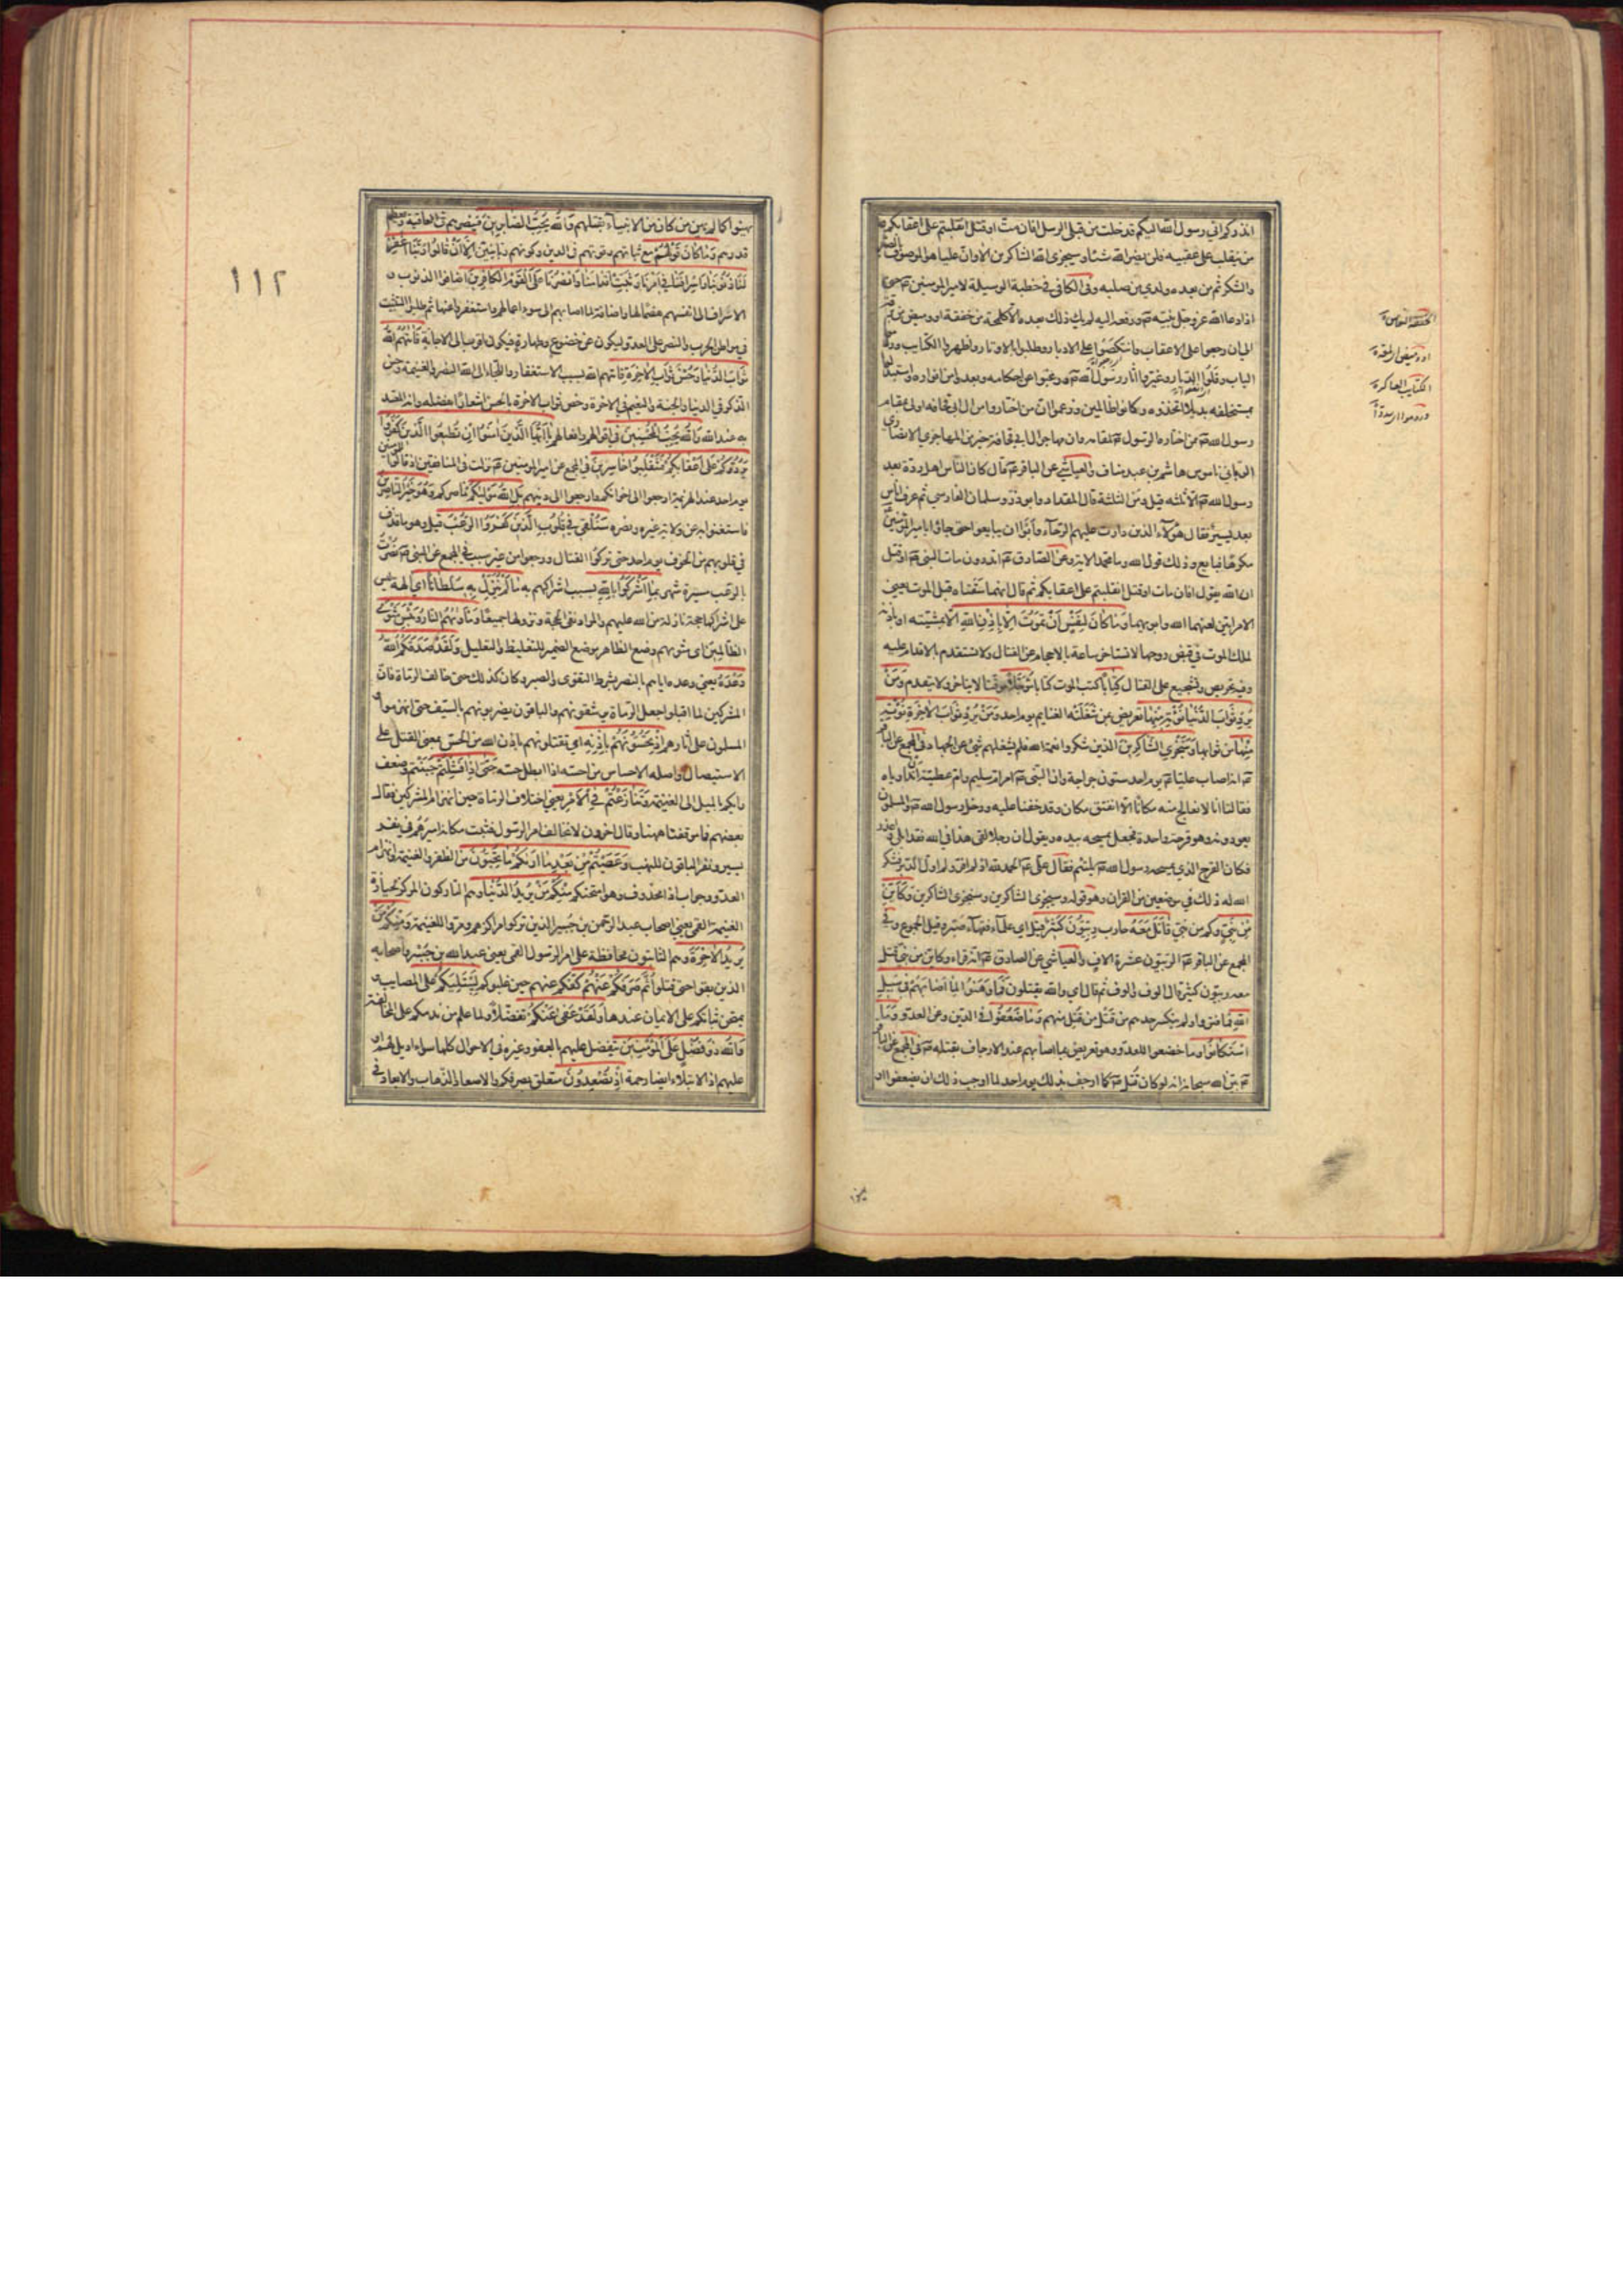 انذركم اني رسول الله اليكم قد خلت من قبلي الرسل افان مت او قتل انقلبتم على اعقابكم و
من ينقلب على عقبيه فلن يضر الله شيئا وسيجزي الله الشاكرين الا وان عليا هو الموصوف بالصبر
والشكر ثم من بعده ولدي من صلبه وفي الكافي في خطبة الوسيلة لامير المؤمنين حتى
اذا دعا الله عز وجل نبيه ورفعه اليه لم يك ذلك بعده الا كلمحة من خفقة او وميض من برقة
الى ان رجعوا على الاعقاب وانتكصوا على الادبار وطلبوا بالاوتار واظهروا الكتايب وردموا
الباب وفلوا الديار وغيروا اثار رسول الله ورغبوا عن احكامه وبعدوا من انواره واستبدلوا
بمستخلفه بديلا اتخذوه وكانوا ظالمين وزعموا ان من اختاروا من ال ابي قحافه اولى بمقام
رسول الله ممن اختاره الرسول لمقامه وان مهاجر ال ابي قحافة خير من المهاجري الانصاري
الرباني ناموس هاشم بن عبد مناف والعياشي عن الباقر قال كان الناس اهل ردة بعد
رسول الله الا ثلثه قيل ومن الثلثة قال المقداد وابو ذر وسلمان الفارسي ثم عرف اناس
بعد يسير فقال هؤلاء الذين دارت عليهم الرحاء وابوا ان يبايعوا حتى جاؤا بامير المؤمنين
مكرها فبايع وذلك قول الله وما محمد الاية وعن الصادق اتدرون مات النبي او قتل
ان الله يقول افان مات او قتل انقلبتم على اعقابكم ثم قال انهما سقتاه قبل الموت يعني
الامراتين لعنهما الله وابويهما وما كان لنفس ان تموت الا باذن الله الا بمشيته او باذنه
لملك الموت في قبض روحها لا تستاخر ساعة بالاحجام عن القتال ولا تستقدم بالاقدام عليه
وفيه تحريص وتشجيع على القتال كتابا كتب الموت كتابا مؤجلا موقتا لا يتاخر ولا يتقدم ومن
يرد ثواب الدنيا نؤته منها تعريض بمن شغلته الغنايم يوم احد ومن يرد ثواب الاخرة نؤته
منها من ثوابها وسنجزي الشاكرين الذين شكروا نعمة الله فلم يشغلهم شئ عن الجهاد في المجمع عن الباقر
انه اصاب عليا يوم احد ستون جراحة وان النبي امر ام سليم وام عطية ان تداوياه
فقالتا انا لا نعالج منه مكانا الا انفتق مكان وقد خفنا عليه ودخل رسول الله والمسلمون
يعودونه وهو قرحة واحدة فجعل يمسحه بيده ويقول ان رجلا لقى هذا في الله فقد ابلى واعذر
فكان القرح الذي يمسحه رسول الله يلتئم فقال علي الحمد لله اذ لم افر ولم اول الدبر فشكر
الله له ذلك في موضعين من القران وهو قوله وسيجزي الشاكرين وسنجزي الشاكرين وكاين
من نبي وكم من نبي قاتل معه حارب ربيون كثير قيل اي علماء فقهاء صبر وقيل الجموع وفي
المجمع عن الباقر الربيون عشرة الاف والعياشي عن الصادق انه قراء وكاين من نبي قتل
معه ربيون كثير قال الوف والوف ثم قال اي والله يقتلون فما وهنوا لما اصابهم في سبيل
الله فما فتروا ولم ينكسر جدهم من قتل من قتل منهم وما ضعفوا في الدين وعن العدو وما
استكانوا وما خضعوا للعدو وهو تعريض بما اصابهم عند الارجاف بقتله في المجمع عن الباقر
بين الله سبحانه انه لو كان قتل كما ارجف بذلك يوم احد لما اوجب ذلك ان يضعفوا او
الخفقة النعاس
او وميض البرقة
الكتايب العساكر
وردموا اي سدوا
١١٢
يهنوا كما لم يهن من كان من الانبياء بقتلهم والله يحب الصابرين فينصرهم في العاقبة ويعظم
قدرهم وما كان قولهم مع ثباتهم وقوتهم في الدين وكونهم ربانيين الا ان قالوا ربنا اغفر
لنا ذنوبنا واسرافنا في امرنا وثبت اقدامنا وانصرنا على القوم الكافرين اضافوا الذنوب و
الاسراف الى انفسهم هضما لها واضافة لما اصابهم الى سوء اعمالهم واستغفروا عنها ثم طلبوا التثبيت
في مواطن الحرب والنصر على العدو ليكون عن خضوع وطهارة فيكون اقرب الى الاجابة فاتيهم الله
ثواب الدنيا وحسن ثواب الاخرة فاتيهم الله بسبب الاستغفار والجاء الى الله النصر والغنيمة وحسن
الذكر في الدنيا والجنة والنعيم في الاخرة وخص ثواب الاخرة بالحسن اشعارا بفضله وانه المعتد
به عند الله والله يحب المحسنين في اقوالهم وافعالهم يا ايها الذين امنوا ان تطيعوا الذين كفروا
يردوكم على اعقابكم فتنقلبوا خاسرين في المجمع عن امير المؤمنين نزلت في المنافقين اذ قالوا للمؤمنين
يوم احد عند الهزيمة ارجعوا الى اخوانكم وارجعوا الى دينهم بل الله موليكم ناصركم وهو خير الناصرين
فاستغنوا به عن ولاية غيره ونصره سنلقي في قلوب الذين كفروا الرعب قيل وهو ما قذف
في قلوبهم من الخوف يوم احد حتى تركوا القتال ورجعوا من غير سبب في المجمع عن النبي نصرت
بالرعب مسيرة شهر بما اشركوا بالله بسبب اشراكهم به ما لم ينزل به سلطانا اي الهة ليس
على اشراكها حجة نازلة من الله عليهم والمراد نفي الحجة ونزولها جميعا وماويهم النار وبئس مثوى
الظالمين اي مثويهم وضع الظاهر موضع الضمير للتغليظ والتعليل ولقد صدقكم الله
وعده يعني وعده اياهم بالنصر بشرط التقوى والصبر وكان كذلك حتى خالف الرماة فان
المشركين لما اقبلوا جعل الرماة يرشقونهم والباقون يضربونهم بالسيف حتى انهزموا و
المسلمون على اثارهم اذ تحسونهم باذنه اي تقتلونهم باذن الله من الحس بمعنى القتل على
الاستيصال واصله الاحساس من احسه اذا ابطل حسه حتى اذا فشلتم جبنتم وضعف
رايكم بالميل الى الغنيمة وتنازعتم في الامر يعني اختلاف الرماة حين انهزام المشركين فقال
بعضهم فما موقفنا ههنا وقال اخرون لا نخالف امر الرسول فثبت مكانه اميرهم في نفر
يسير ونفر الباقون للنهب وعصيتم من بعد ما اريكم ما تحبون من الظفر والغنيمة وانهزام
العدو وجواب اذا محذوف وهو امتحنكم منكم من يريد الدنيا وهم التاركون المركز لحيازة
الغنيمة القمي يعني اصحاب عبد الرحمن بن جبير الذين تركوا مراكزهم ومروا للغنيمة ومنكم من
يريد الاخرة وهم الثابتون محافظة على امر الرسول القمي يعني عبد الله بن جبير واصحابه
الذين بقوا حتى قتلوا ثم صرفكم عنهم كفكم عنهم حين غلبوكم ليبتليكم على المصايب و
يمتحن ثباتكم على الايمان عندها ولقد عفى عنكم تفضلا ولما علم من ندمكم على المخالفة
والله ذو فضل على المؤمنين يتفضل عليهم بالعفو وغيره في الاحوال كلها سواء اديل لهم او
عليهم اذ الابتلاء ايضا رحمة اذ تصعدون متعلق بصرفكم والاصعاد الذهاب والابعاد في